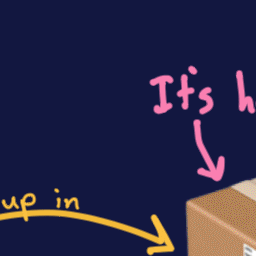 It's h
up in